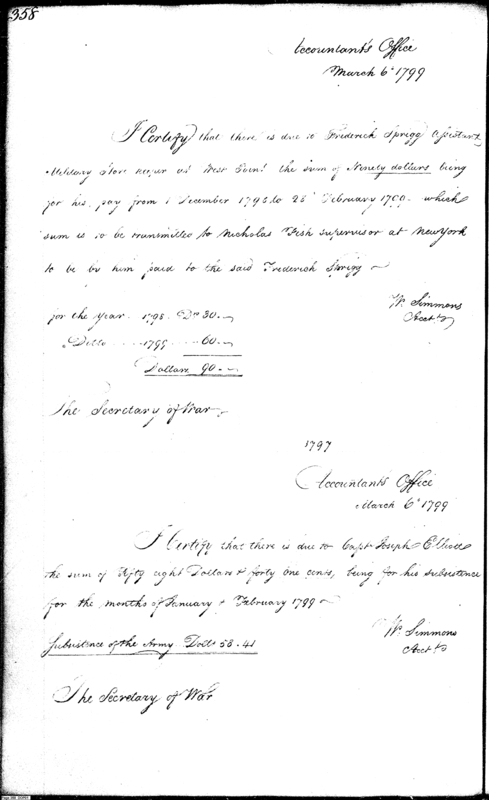 358
Accountant's Office
March 6th 1799
I Certify that there is due to Frederick Sprigg Assistant
Military Store keeper at West Point the sum of Ninety dollars being
for his pay from 1 December 1798 to 28 February 1799. which
sum is to be transmitted to Nicholas Fish supervisor at New York
to be by him paid to the said Frederick Sprigg
Wm Simmons
Acct
for the Year 1798 Ds 30.
Ditto 1799 60.
Dollars 90.
The Secretary of War
1797
Accountants Office
March 6th 1799
I Certify that there is due to Capt Joseph Elliott
the sum of fifty eight Dollars & forty one cents, being for his subsistence
for the months of January & February 1799
Wm Simmons
Acct
Subsistence of the Army Dolls 58.41
The Secretary of War